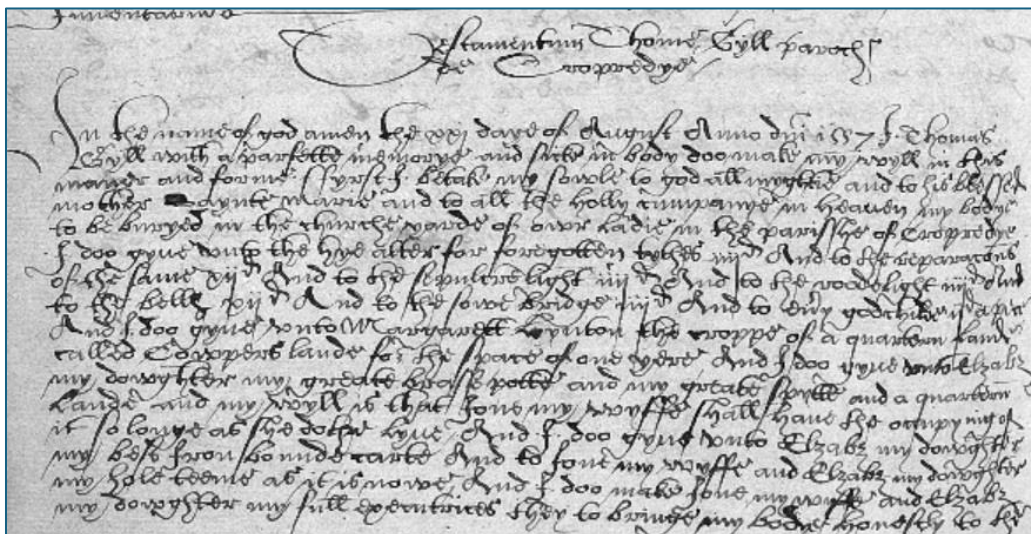 Inventarium
Testamentum Thome Gyll paroch
de Cropredye
In the name of god amen the xxi daye of August Anno dni 1557 I Thomas
Gyll with a parfette memorye and sicke in body doo make my wyll in this
maner and forme ffyrst I betake my sowle to god all myghtie and to his blessed
mother Saynte Marie and to all the holly cumpanye in heaven my bodye
to be buryed in the churche yarde of owr Ladie in the parisshe of Cropredye
I doo gyve unto the hye alter for foregotten tythes iiiid And to the reparacons
of the same xiid And to the sepulcre light iiiid And to the roode light iiiid And
to the bells xiid And to the bridge iiiid And to evry godchilde iiiid a pece
And I doo gyve unto Margarett Lynton the croppe of a quartern Lande
called Cowpers lande for the space of one yere And I doo gyve unto Elzabz
my dowghter my greate brasse potte and my greate spytte and a quartern
Lande and my wyll is that Jone my wyffe shall have the occupying of
it so longe as she dothe lyve And I doo gyve unto Elzabz my dowghter
my best Iron bounde carte And to Jone my wyffe and Elzabz my dowghter
my hole teeme as it is nowe And I doo make Jone my wyffe and Elzabz
my dowghter my full executrices they to bringe my bodye honestly to the